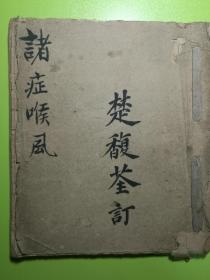 諸症喉风
楚馥荃訂